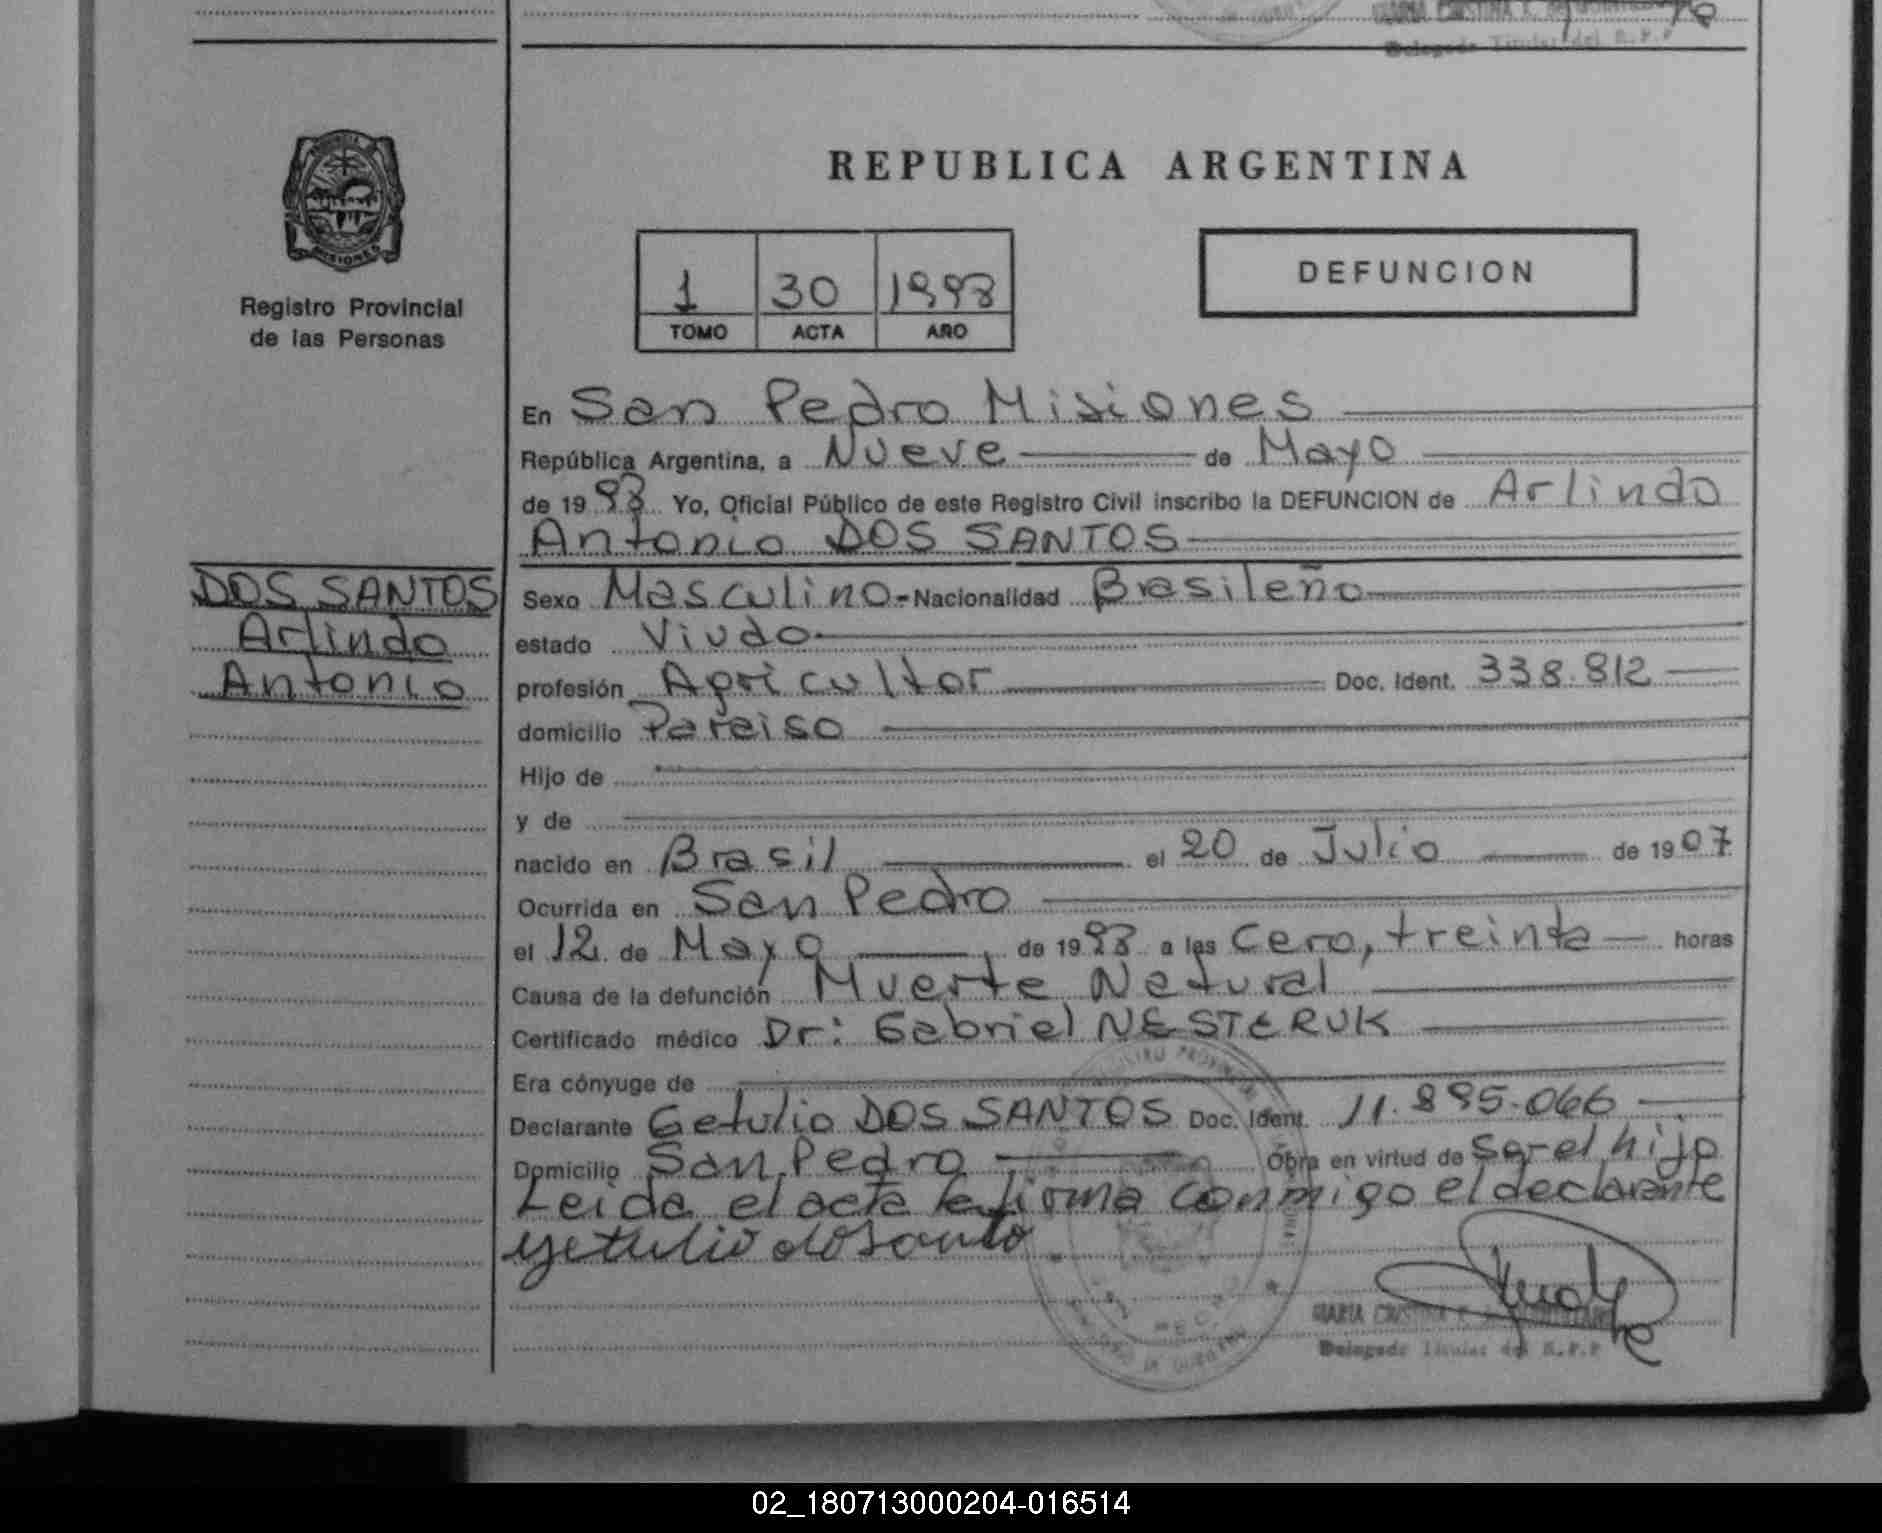 Delegada Titular del R.P.P
REPUBLICA ARGENTINA
MISIONES
Registro Provincial
de las Personas
1 30 1993
TOMO ACTA AÑO
DEFUNCION
En San Pedro Misiones
República Argentina, a Nueve de Mayo
de 1993 Yo, Oficial Público de este Registro Civil inscribo la DEFUNCION de Arlindo
Antonio DOS SANTOS
DOS SANTOS
Arlindo
Antonio
Sexo Masculino - Nacionalidad Brasileño
estado Viudo
profesión Agricultor Doc. Ident. 338.812
domicilio Paraiso
Hijo de
y de
nacido en Brasil el 20 de Julio de 1907
Ocurrida en San Pedro
el 12 de Mayo de 1993 a las Cero, treinta horas
Causa de la defunción Muerte Natural
Certificado médico Dr: Gabriel NESTERUK
Era cónyuge de
Declarante Getulio DOS SANTOS Doc. Ident. 11.895.066
Domicilio San Pedro Obra en virtud de Ser el hijo
Leida el acta la firma conmigo el declarante
getulio dosanto
MARIA CRISTINA F.
Delegada Titular del R.P.P
02_180713000204-016514